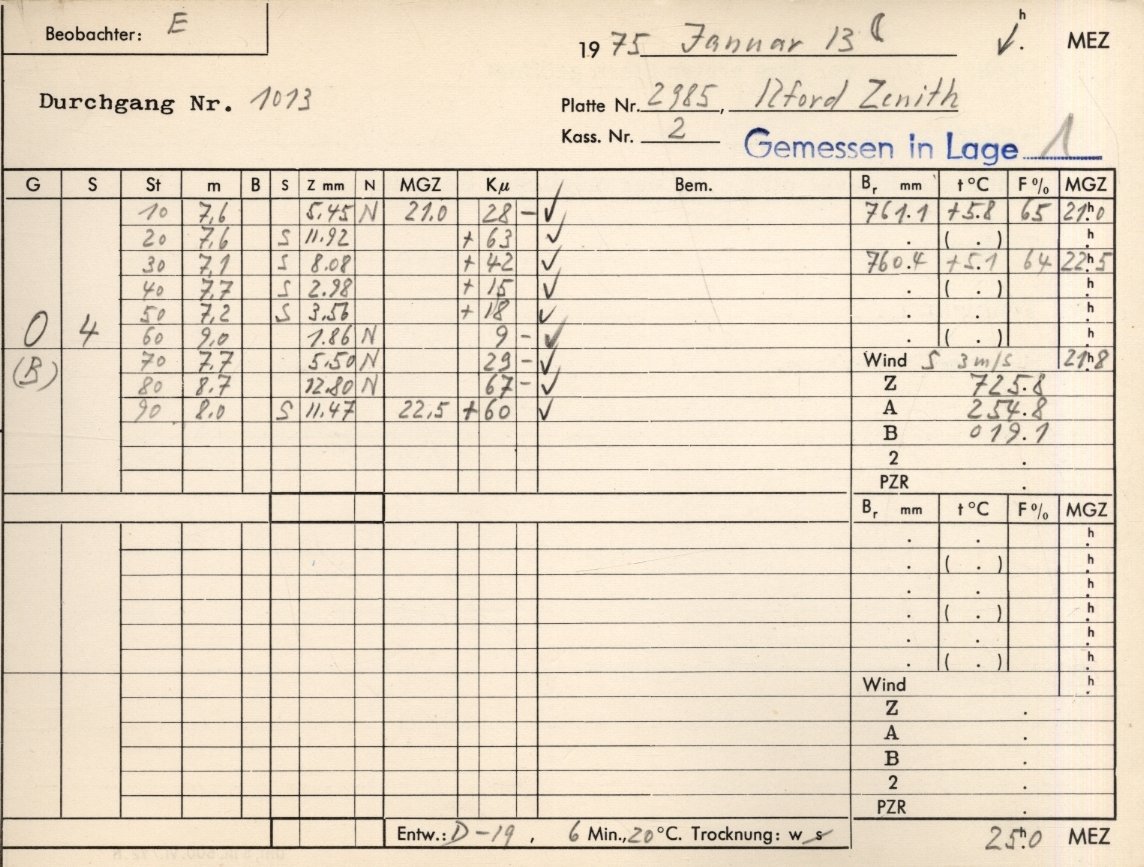 Beobachter: E
1975 Januar 13 h . MEZ
Durchgang Nr. 1013
Platte Nr. 2985, Ilford Zenith
Kass. Nr. 2
Gemessen in Lage 1
G S St m B S Z mm N MGZ Kμ ✓ Bem. Br mm t °C F% MGZ
10 7,6 5.45 N 21,0 28 – ✓ 761.1 +5.8 65 21h.0
20 7,6 S 11.92 + 63 ✓ . ( . ) h.
30 7,1 S 8.08 + 42 ✓ 760.4 +5.1 64 22h.5
40 7,7 S 2.98 + 15 ✓ . ( . ) h.
50 7,2 S 3.56 + 18 ✓ . . h.
0 4 60 9,0 1.86 N 9 – ✓ . ( . ) h.
(B) 70 7,7 5.50 N 29 – ✓ Wind S 3 m/s 21h.8
80 8.7 12.80 N 67 – ✓ Z 725.8
90 8.0 S 11.47 22,5 + 60 ✓ A 254.8
B 019.1
2 .
PZR .
Br mm t °C F% MGZ
. . h.
. ( . ) h.
. . h.
. ( . ) h.
. . h.
. ( . ) h.
Wind h.
Z .
A .
B .
2 .
PZR .
Entw.: D-19, 6 Min., 20 °C. Trocknung: w s 25h.0 MEZ